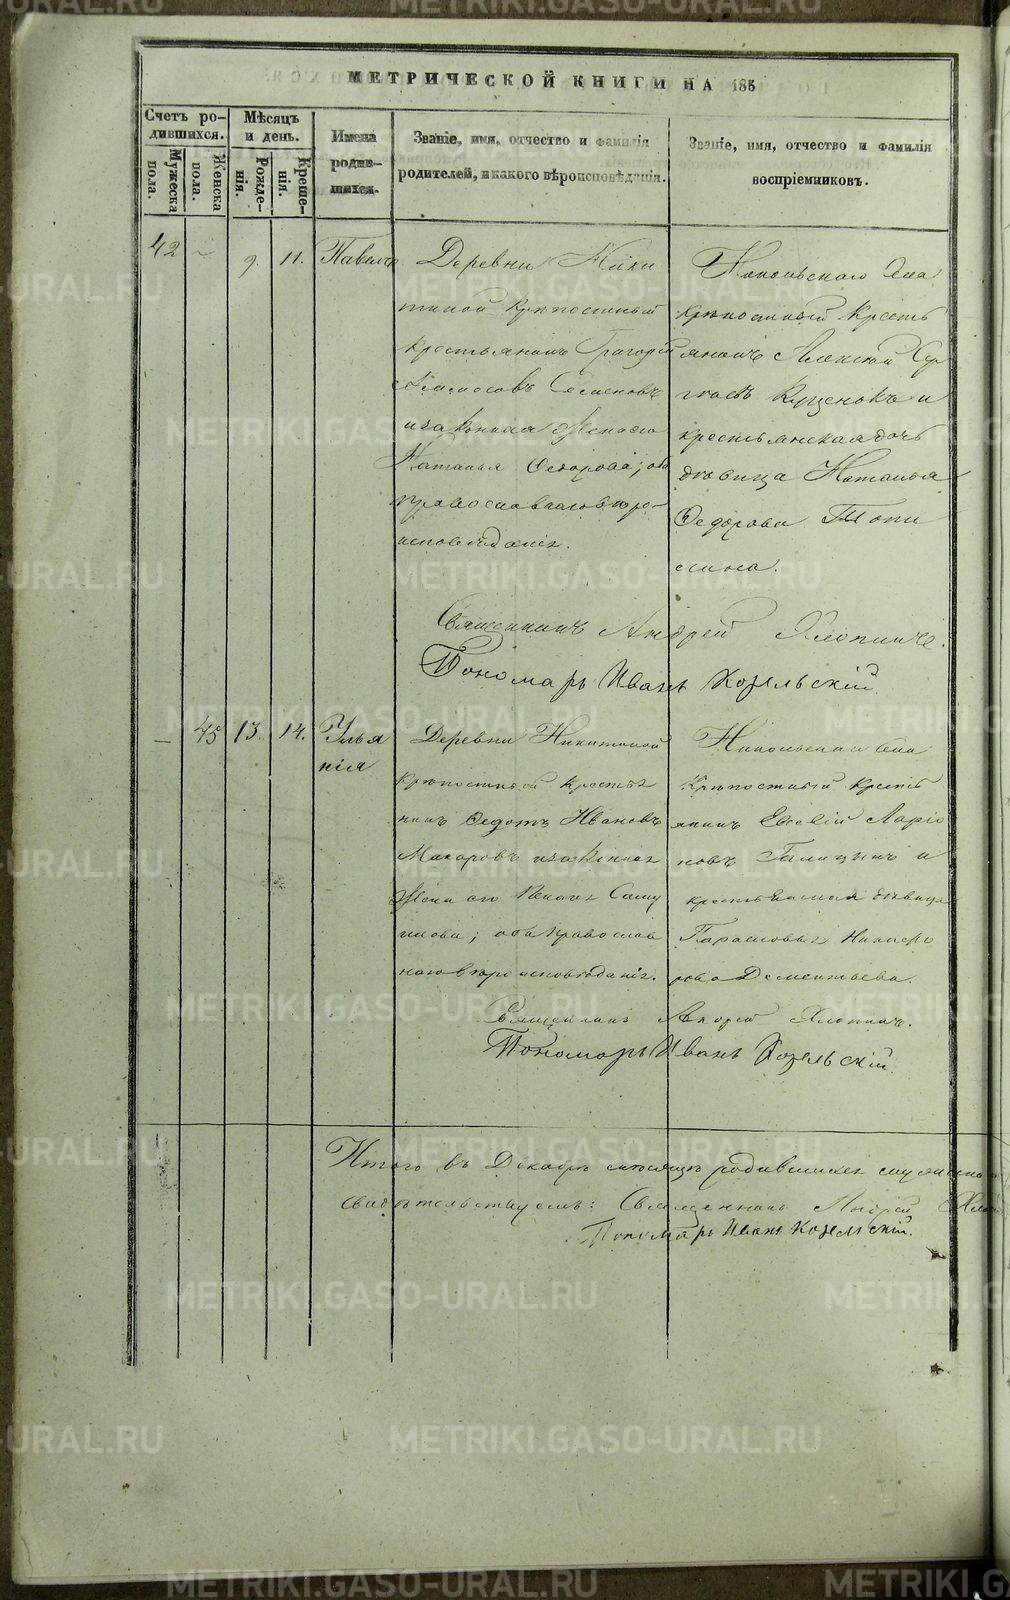 МЕТРИЧЕСКОЙ КНИГИ НА 185
Счетъ ро-
дившихся.
Мужеска
пола.
Женска
пола.
Мѣсяцъ
и день.
Рожде-
нія.
Креще-
нія.
Имена
родив-
шихся.
Званіе, имя, отчество и фамилія
родителей, и какого вѣроисповѣданія.
Званіе, имя, отчество и фамилія
воспріемниковъ.
42 — 9. 11. Павелъ
Деревни Ники
тиной крѣпостный
крестьянинъ Григорій
Семеновъ
законная жена его
Наталья Федорова; оба
православнаго вѣро-
исповѣданія.
Никольскаго села
крѣпостный кресть
янинъ Алексѣй Сер
гѣевъ и
крестьянская дочь
дѣвица Наталья
Федорова
Священникъ Андрей Хлопинъ.
Пономарь Иванъ Козельскій
— 45 13. 14. Улья
нія
Деревни Никитиной
крѣпостный крестья
нинъ Федотъ Ивановъ
Макаровъ и законная
жена его
оба православ
наго вѣроисповѣданія.
Никольскаго села
крѣпостный кресть
янинъ Евсевій Ларіо
новъ Галицынъ и
крестьянская дѣвица
Парасковья Никифо
рова Дементьева.
Священникъ Андрей Хлопинъ.
Пономарь Иванъ Козельскій
Итого въ Декабрѣ мѣсяцѣ родившихся
свидѣтельствуемъ: Священникъ Андрей
Пономарь Иванъ Козельскій.
METRIKI.GASO-URAL.RU